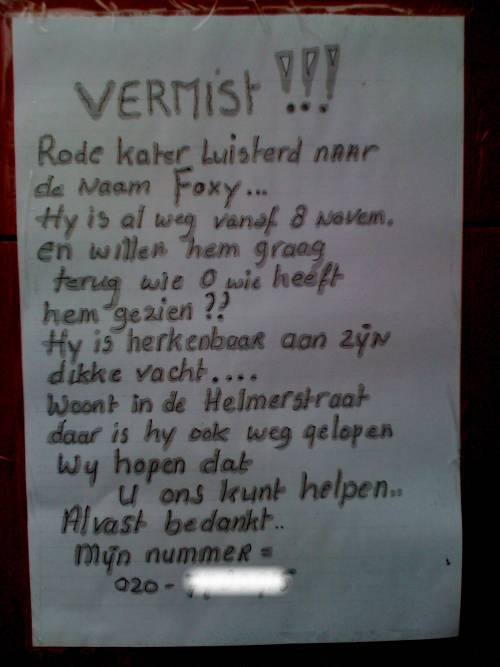 VERMIST !!!
Rode kater Luisterd NAAR
de Naam Foxy...
Hy is al weg vanaf 8 Novem.
en willen hem graag
terug wie O wie heeft
hem gezien ??
Hy is herkenbaar aan ZijN
dikke vacht....
Woont in de Helmerstraat
daar is hy ook weg gelopen
Wy hopen dat
U ons kunt helpen..
Alvast bedankt..
Mijn nummer =
020-